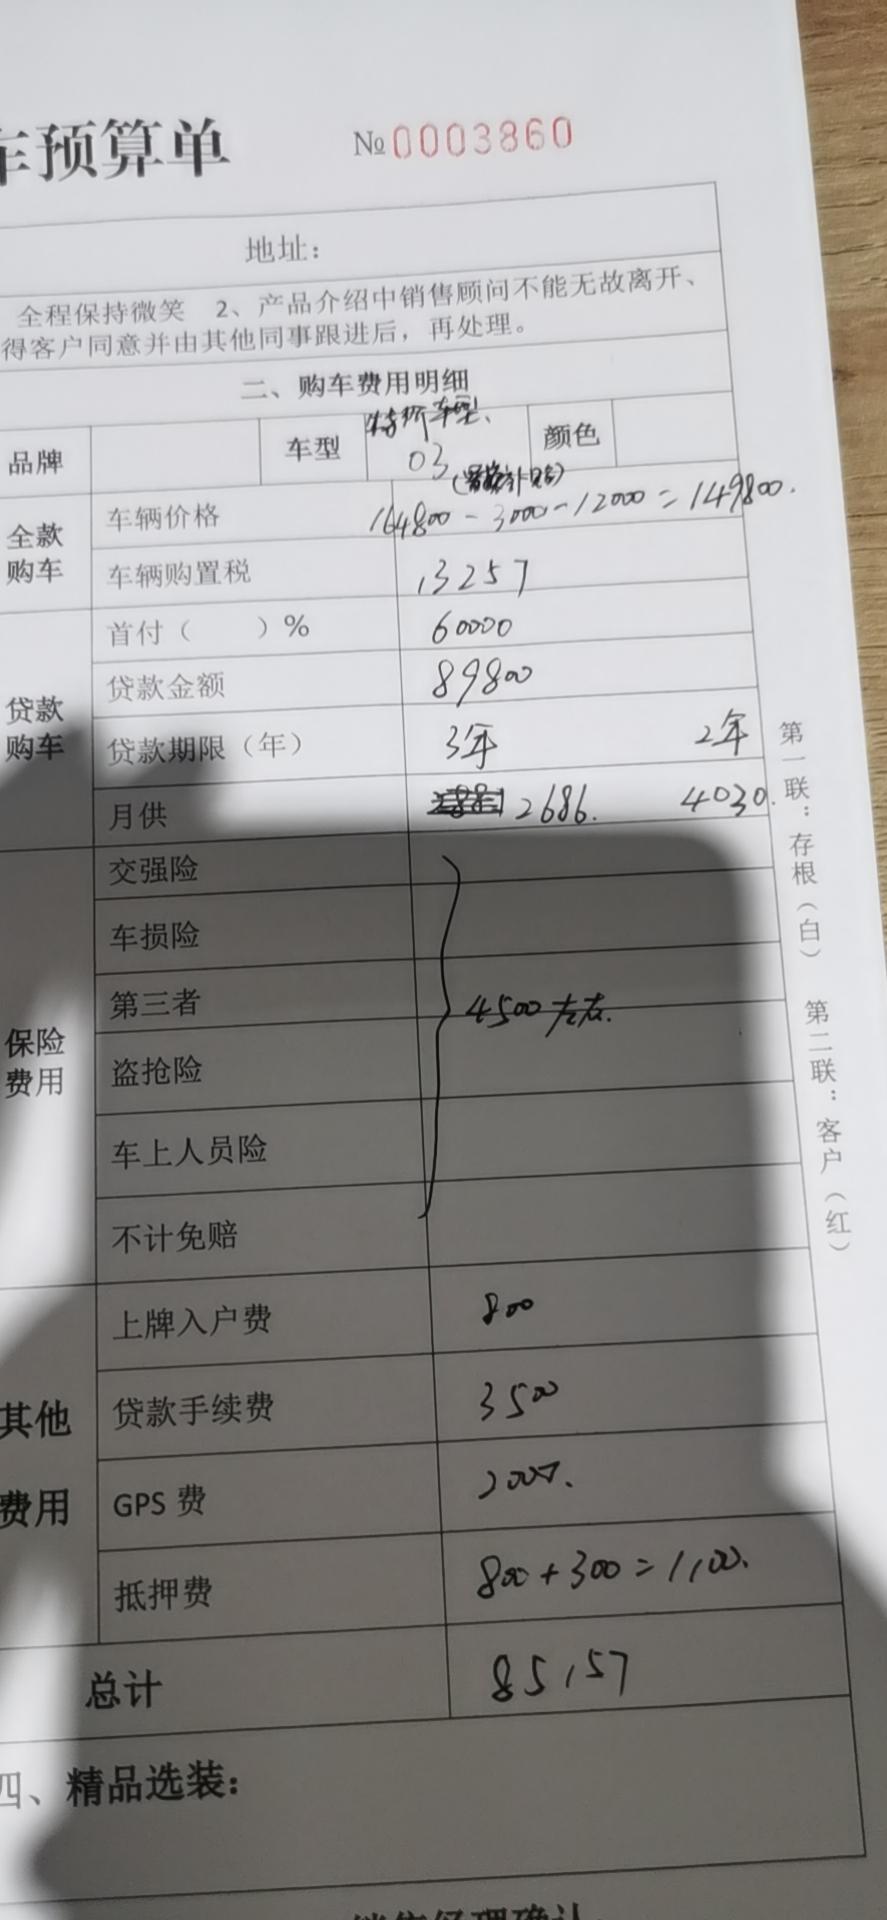 车预算单 № 0003860
地址：
全程保持微笑 2、产品介绍中销售顾问不能无故离开、
得客户同意并由其他同事跟进后，再处理。
二、购车费用明细
品牌 车型 特价车型、 03 颜色
(置换补贴)
全款购车 车辆价格 164800-3000-12000=149800.
车辆购置税 13257
贷款购车 首付（ ）% 60000
贷款金额 89800
贷款期限（年） 3年 2年
月供 2686. 4030.
保险费用 交强险
车损险
第三者 4500左右.
盗抢险
车上人员险
不计免赔
其他费用 上牌入户费 800
贷款手续费 3500
GPS 费
抵押费 800+300=1100.
总计 85157
四、精品选装：
销售经理确认
第一联：存根（白） 第二联：客户（红）